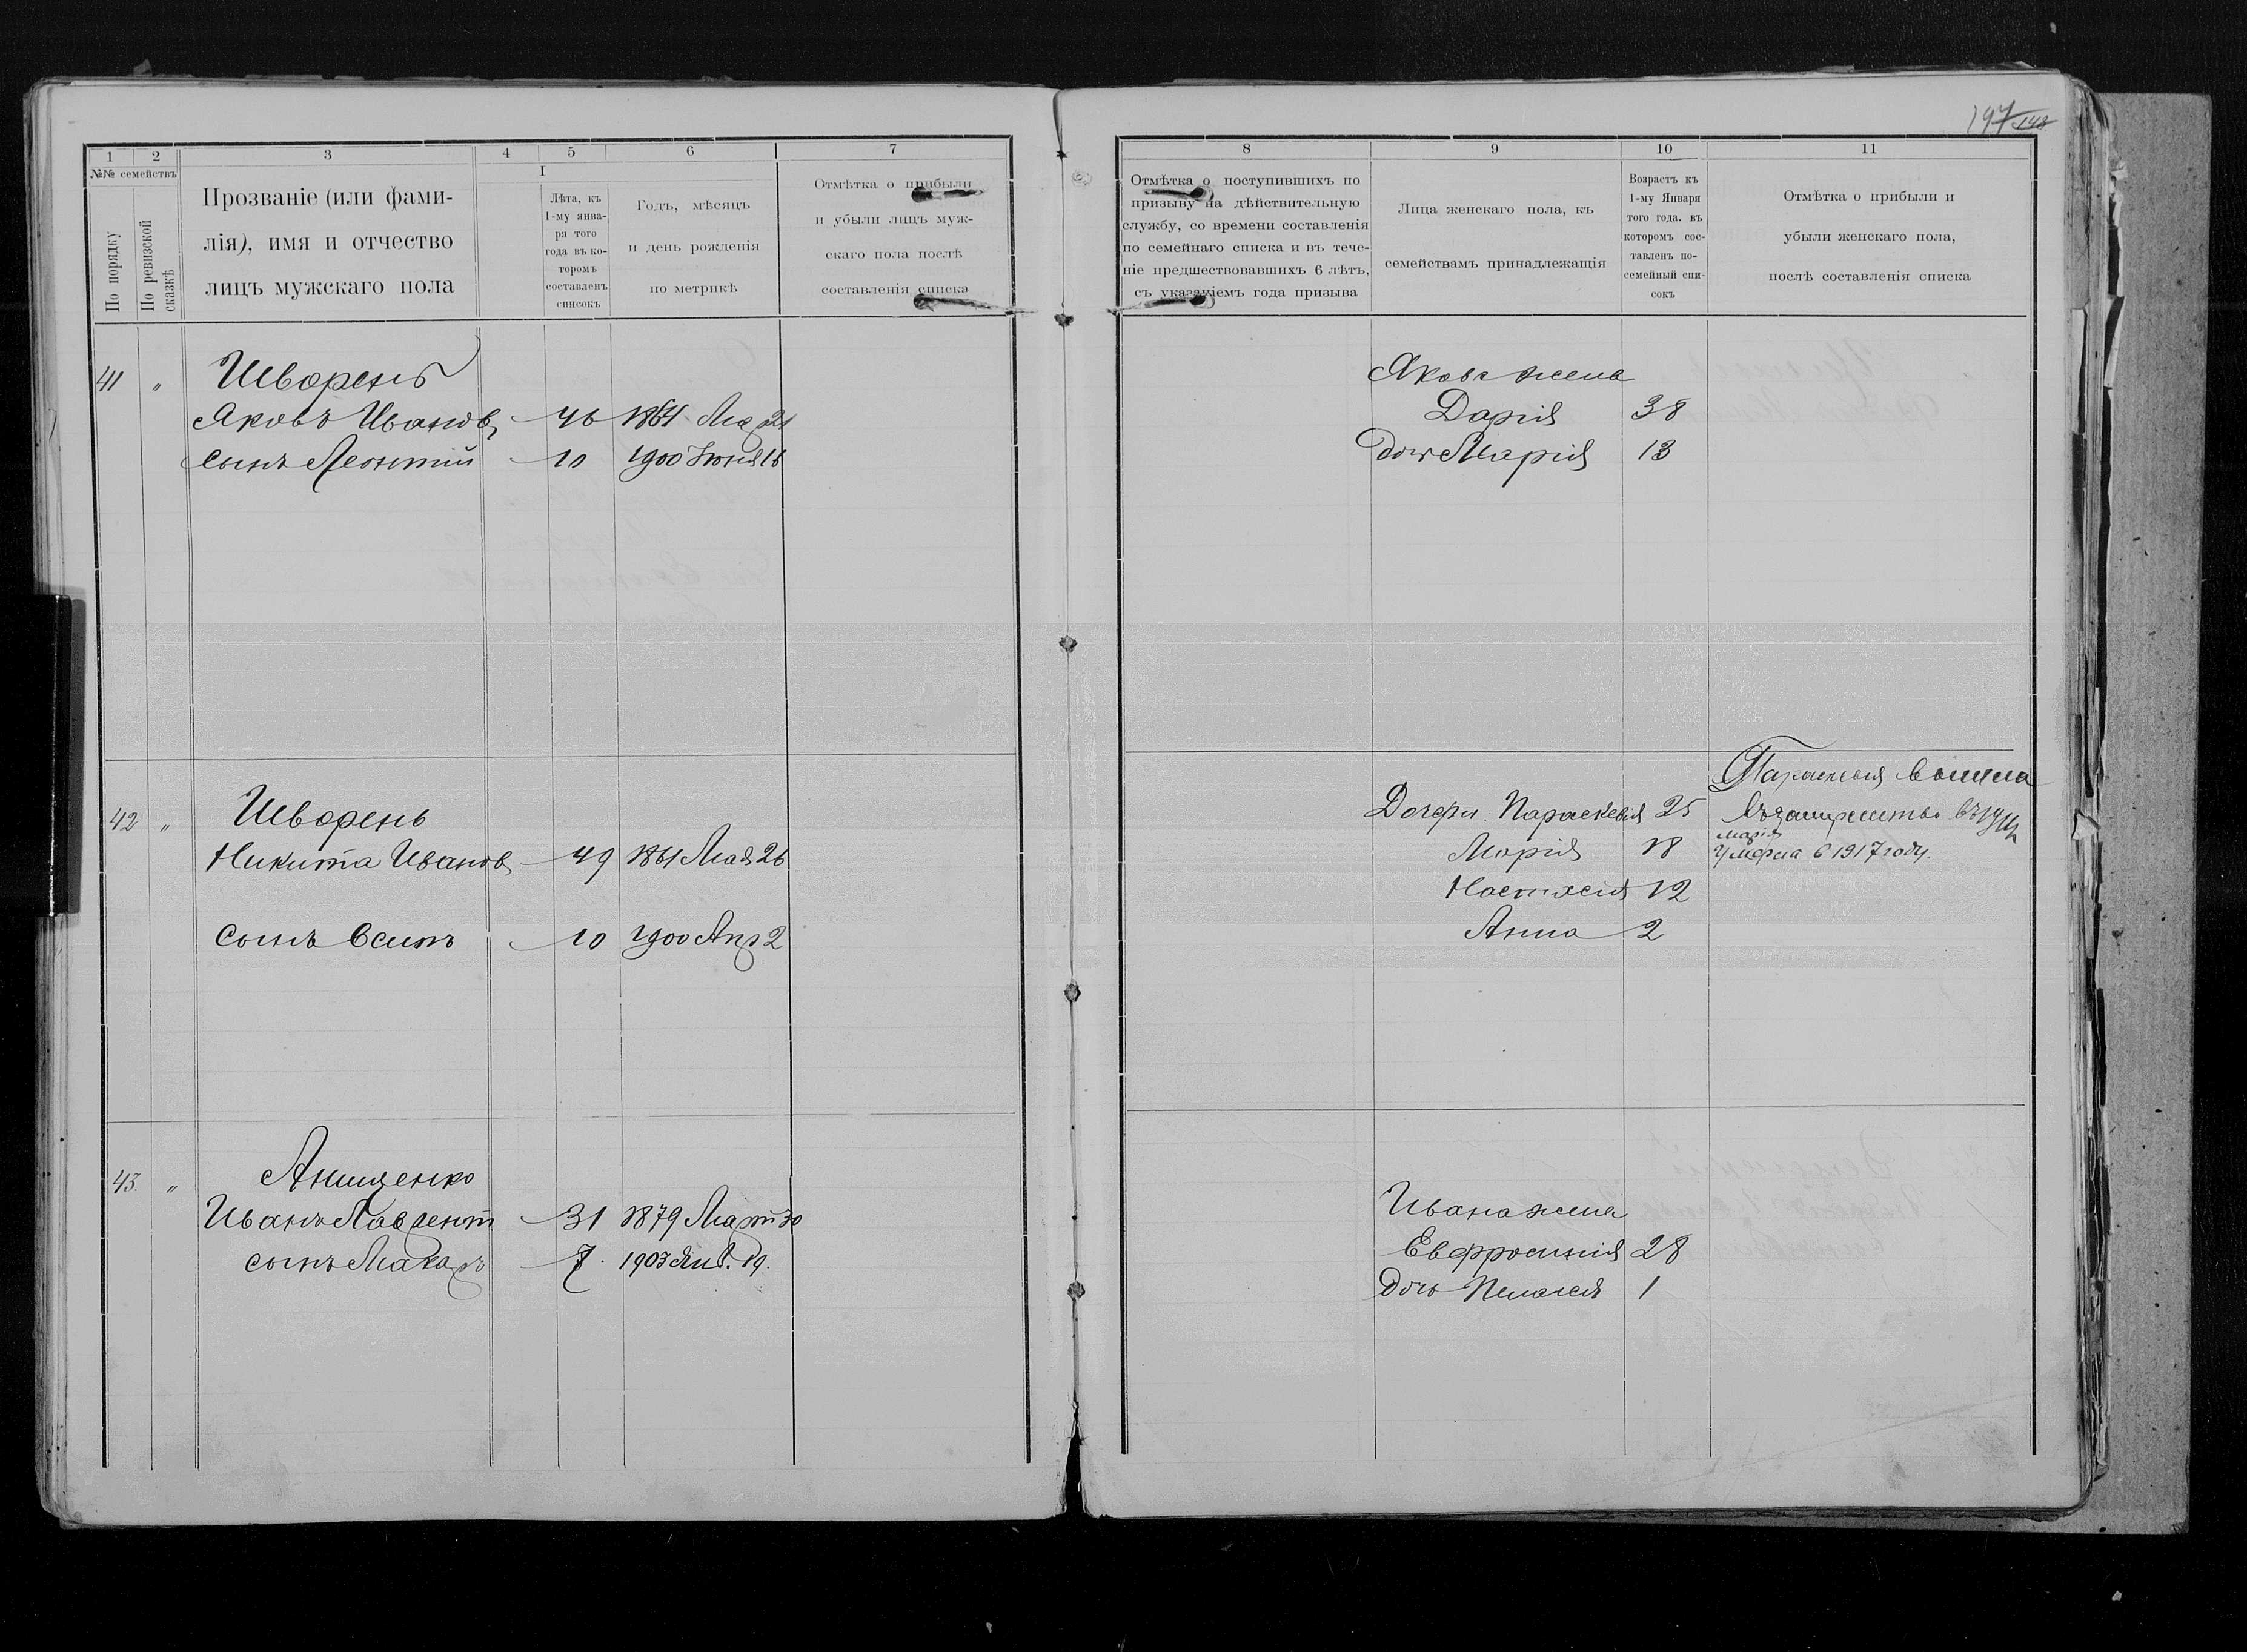 197 148
1 2 3 4 5 6 7
№№ семействъ
По порядку
По ревизской сказкѣ
Прозваніе (или фами-
лія), имя и отчество
лицъ мужскаго пола
I
Лѣта, къ
1-му янва-
ря того
года въ ко-
торомъ
составленъ
списокъ
Годъ, мѣсяцъ
и день рожденія
по метрикѣ
Отмѣтка о прибыли
и убыли лицъ муж-
скаго пола послѣ
составленія списка
41 " Шворень
Яковъ Иванов 46 1864 Мар 21
сынъ Леонтій 10 1900 Іюня 16
42 " Шворень
Никита Иванов 49 1861 Мая 26
сынъ 10 1900 Апр 2
43. " Анищенко
Иванъ Лаврент 31 1879 Март 30
сынъ Макаръ 7. 1903 Янв. 19.
8 9 10 11
Отмѣтка о поступившихъ по
призыву на дѣйствительную
службу, со времени составленія
по семейнаго списка и въ тече-
ніе предшествовавшихъ 6 лѣтъ,
съ указаніемъ года призыва
Лица женскаго пола, къ
семействамъ принадлежащія
Возрастъ къ
1-му Января
того года. въ
которомъ сос-
тавленъ по-
семейный спи-
сокъ
Отмѣтка о прибыли и
убыли женскаго пола,
послѣ составленія списка
Якова жена
Дарія 38
доч Марія 13
вышла
Дочери. Параскевія 25
Марія
Марія 18 Умерла в 1917 году.
Настасія 12
Анна 2
Ивана жена
Евфросинія 28
дочь Пелагея 1